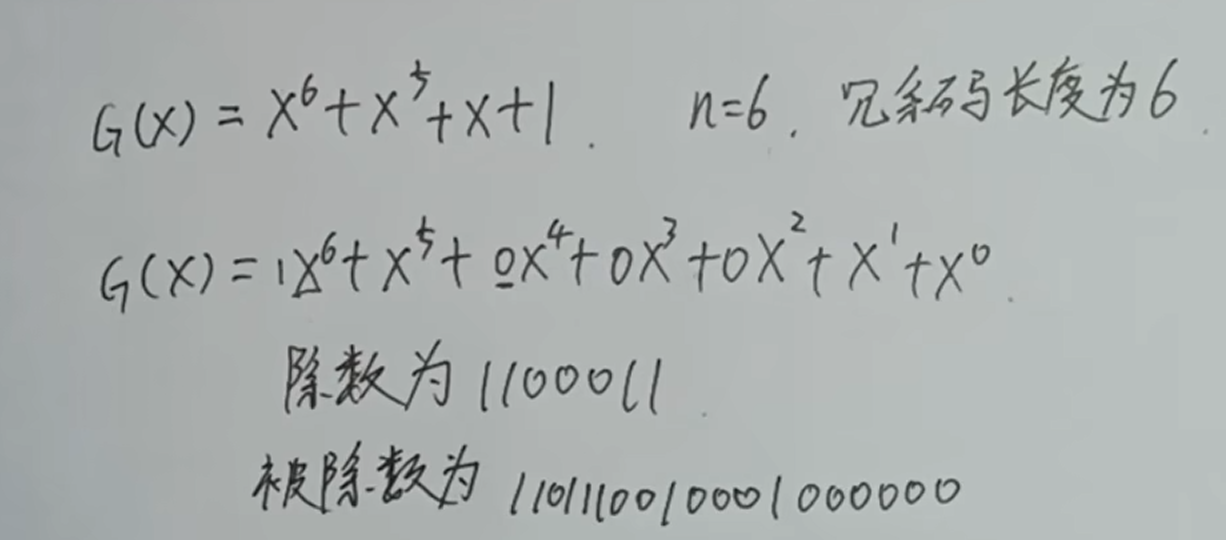 G(X) = X⁶+X⁵+X+1. n=6, 冗余码长度为6.
G(X) = 1X⁶+X⁵+0X⁴+0X³+0X²+X¹+X⁰.
除数为 1100011.
被除数为 1101110010001000000